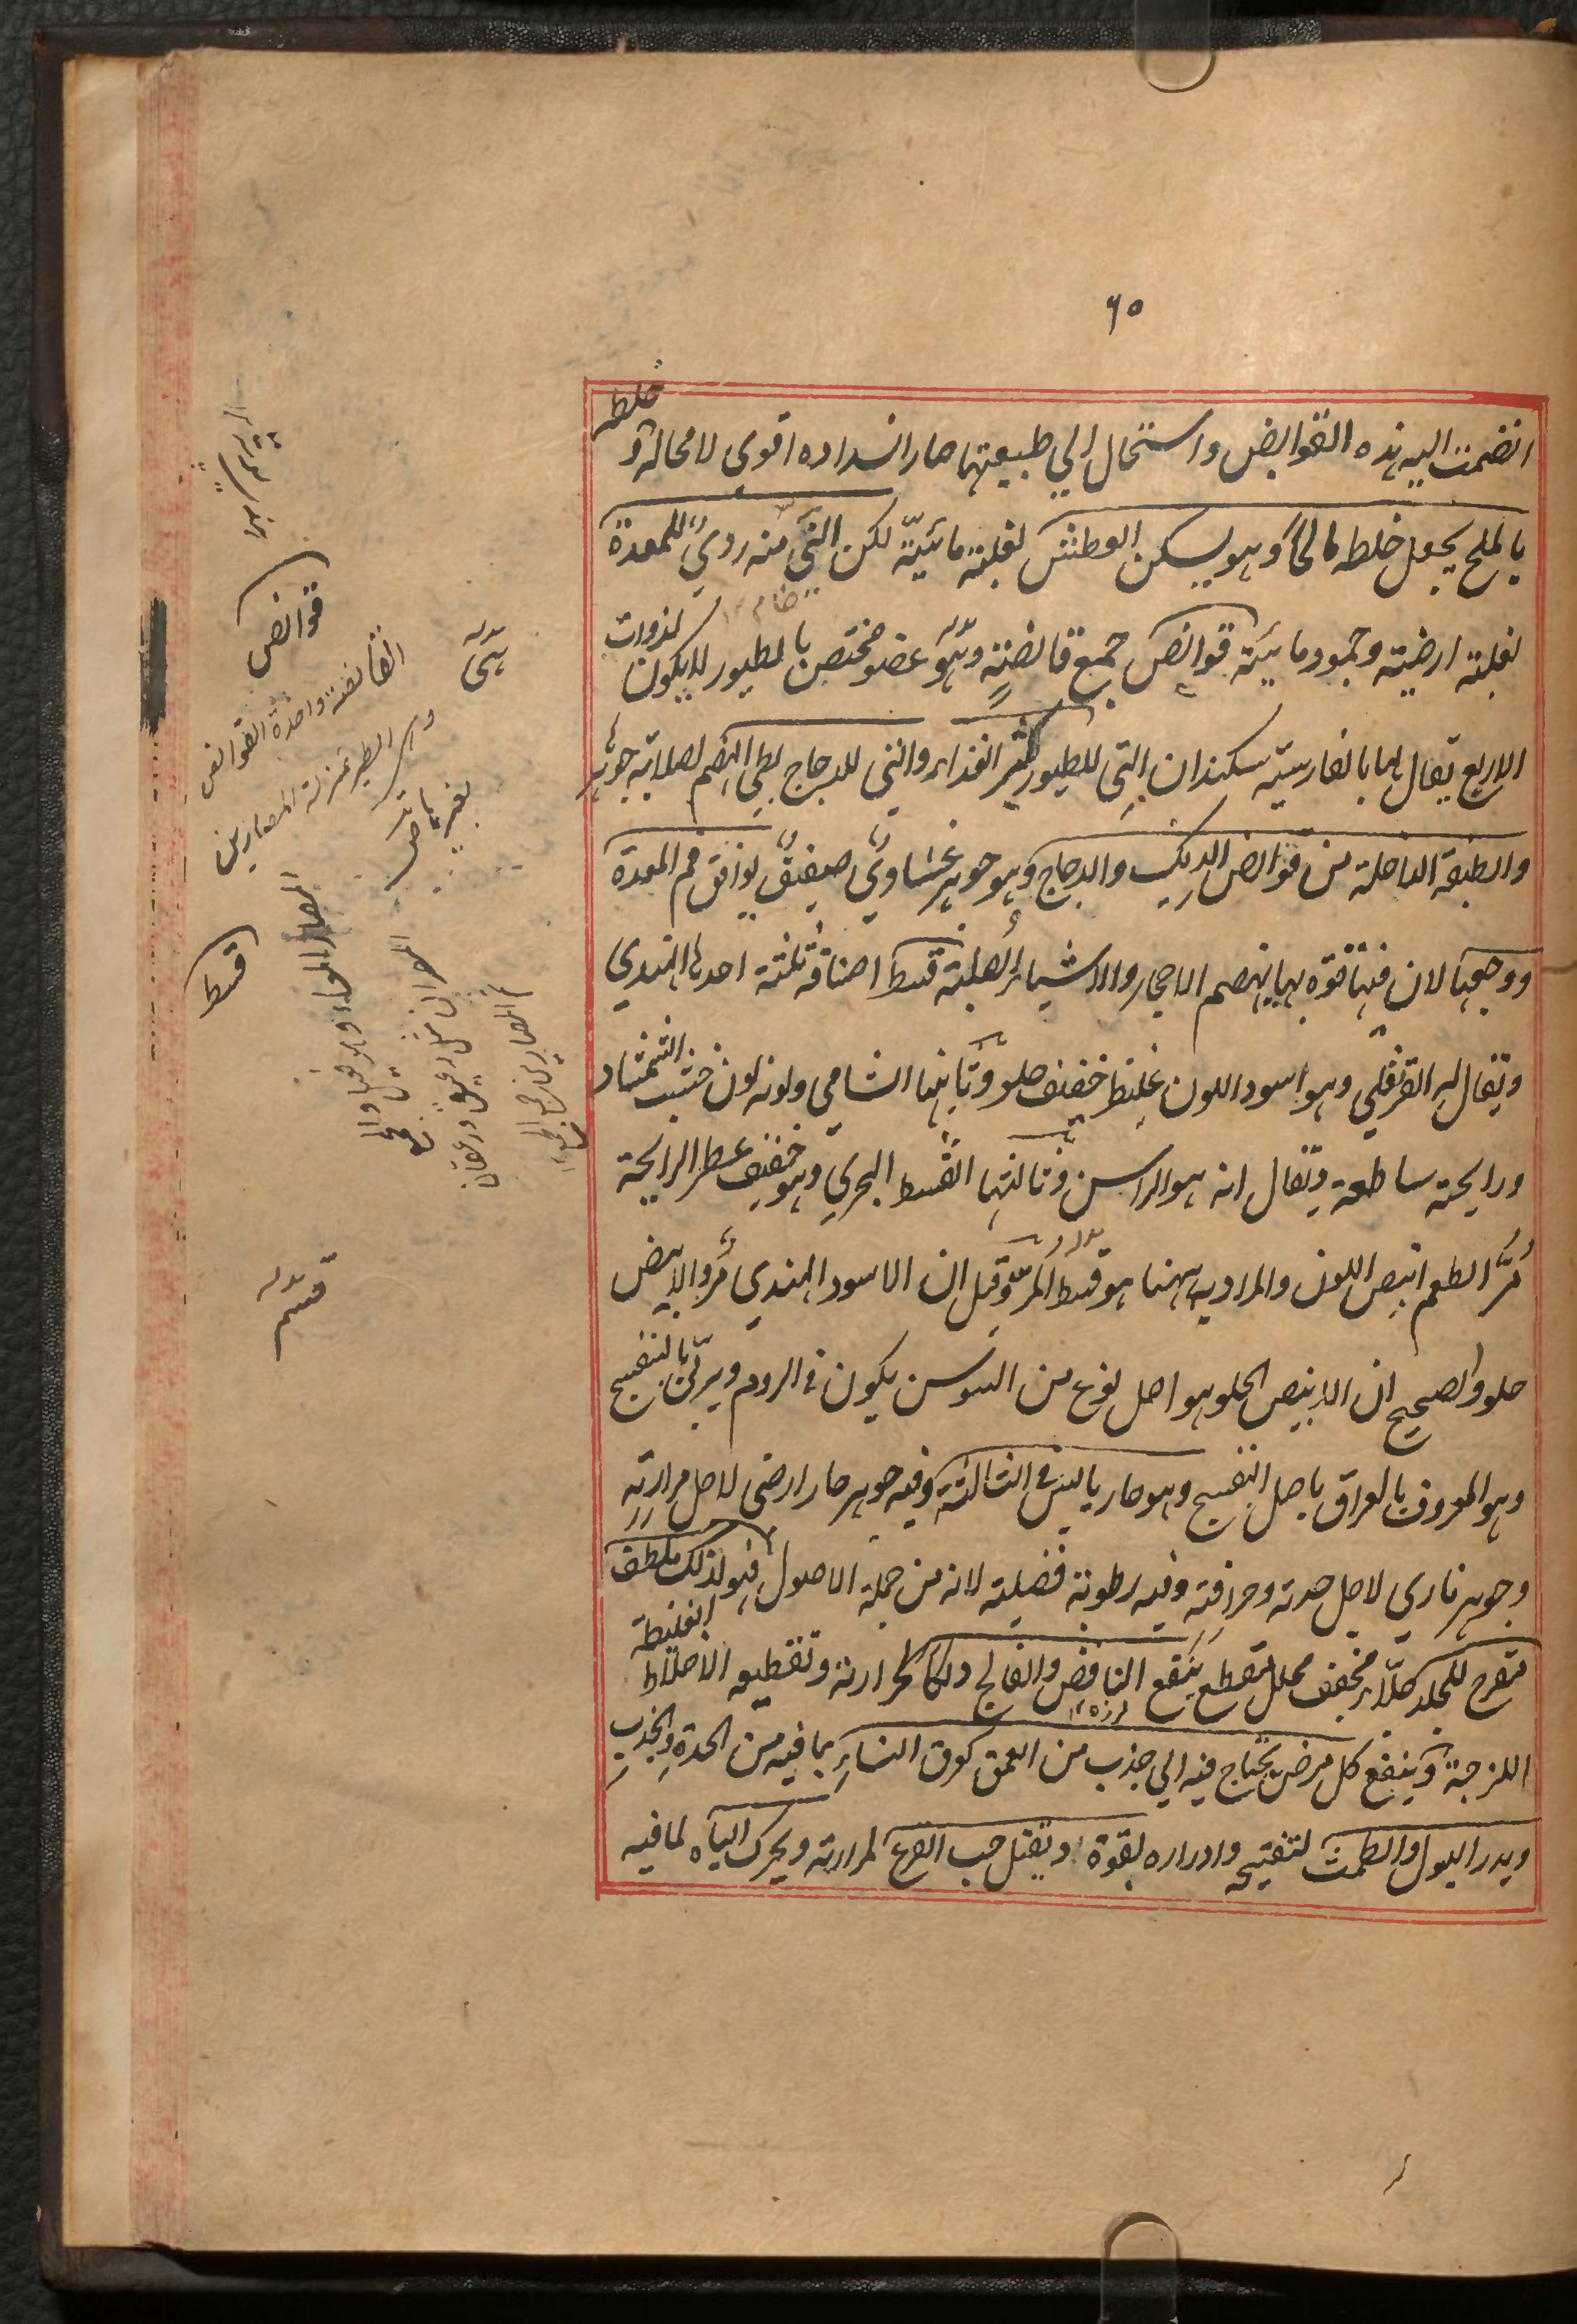 ٦٥
انضمت اليه هذه القوابض واستحال الي طبيعتها صار انسداده اقوي لا محالة و خلطه
بالملح يجعل خلطه مالحًا وهو يسكن العطش لغلبة مائيّة لكن النيّ منه رديٌ للمعدة
خام ١٢
لغلبة ارضية وجمود مائيّة قوانص جمع قانصةٍ وهو عضو مختص بالطيور لا يكون لذوات
الاربع يقال لها بالفارسية سنكدان التي للطيور كثير الغذاء والتي للدجاج بطي الهضم لصلابة جوهرها
والطبقة الداخلة من قوانص الديك والدجاج وهو جوهر غشاويٌ صفيقٌ يوافق فم المعدة
ووجعها لان فيها قوة بها ينهضم الاحجار والاشياء الصلبة قسط اصنافه ثلثة احدها الهندي
ويقال له القرنفلي وهو اسود اللون غليظ خفيف حلو وثانيها الشامي ولونه لون خشب الشمشاد
ورايحته ساطعة ويقال انه هو الراسن وثالثها القسط البحري وهو خفيف عطر الرايحة
مُرّ الطعم ابيض اللون والمراد به ههنا هو قسط المرّ وقيل ان الاسود الهندي مُر والابيض
حلو والصحيح ان الابيض الحلو هو اصل نوع من السوسن يكون في الروم ويربّي بالبنفسج
وهو المعروف بالعراق باصل البنفسج وهو حار يابس في الثالثة وفيه جوهر حار ارضي لاجل مرارته
وجوهر ناري لاجل حدته وحرافته وفيه رطوبة فضلية لانه من جملة الاصول فهو لذلك ملطف
مقرح للجلد محلل مقطع ينفع النافض والفالج دلكا لحرارته وتقطيعه الاخلاط الغليظة
لرزه ١٢
اللزجة وينفع كل مرض يحتاج فيه الي جذب من العمق كعرق النساء بما فيه من الحدة والجذب
ويدر البول والطمث لتفتيحه وادراره بقوة ويقتل حب القرع لمرارته ويحرك الباه لما فيه
قوانص
القانصة واحدة القوانص
وهي للطير بمنزلة المصارين
لغيرها
قسط